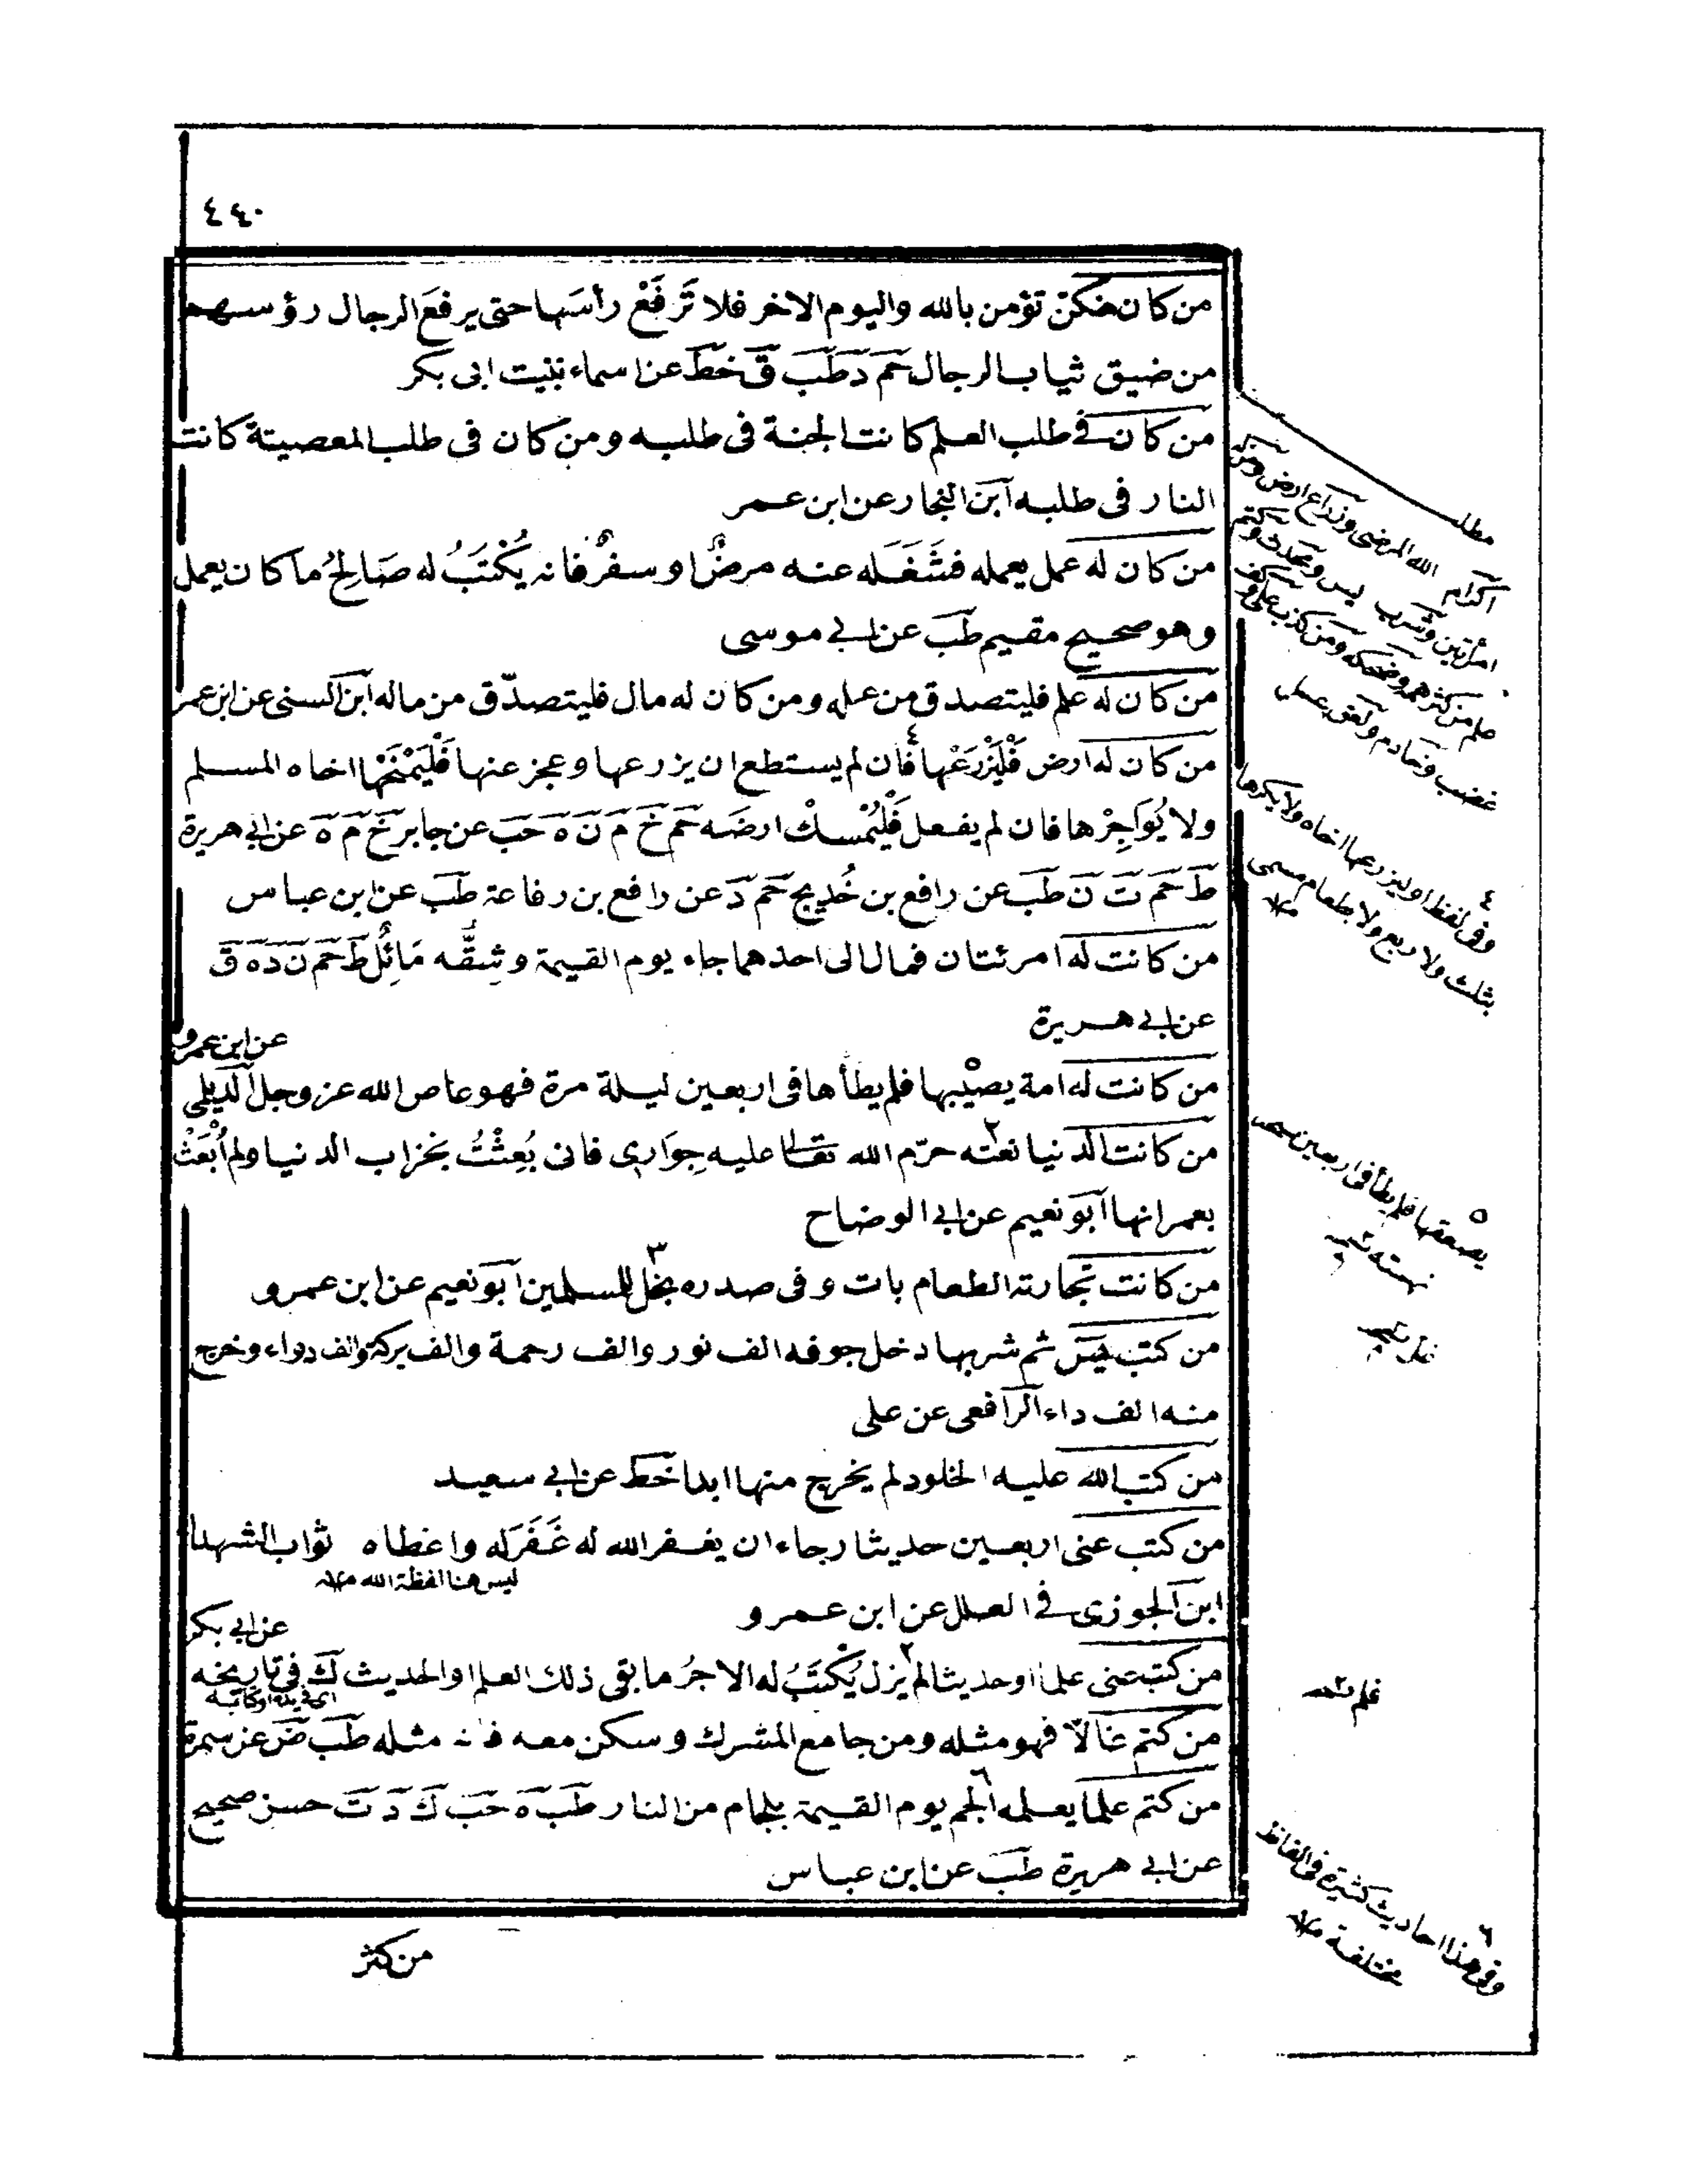 ٤٤٠
من كان منكنّ تؤمن بالله واليوم الاخر فلا تَرفَعْ رأسَها حتى يرفعَ الرجال رؤسهم
من ضيق ثياب الرجال حم د طب ق خط عن اسماء بنت ابى بكر
من كان فى طلب العلم كانت الجنة فى طلبه ومن كان فى طلب المعصيتة كانت
النار فى طلبه ابن النجار عن ابن عمر
من كان له عمل يعمله فشَغَله عنه مرضٌ او سفرٌ فانه يُكْتَبُ له صَالِحُ ما كان يعمل
وهو صحيح مقيم طب عن ابى موسى
من كان له علم فليتصدق من علمه ومن كان له مال فليتصدّق من ماله ابن السنى عن ابن عمر
من كان له ارض فَلْيَزْرَعْها ٤ فان لم يستطع ان يزرعها وعجز عنها فَلْيَمْنَحْها اخاه المسلم
ولا يُوَاجِرْها فان لم يفعل فَلْيُمْسك ارضَه حم خ م ن ه حب عن جابر خ م ه عن ابى هريرة
ط حم ت ن طب عن رافع بن خُديج حم د عن رافع بن رفاعة طب عن ابن عباس
من كانت له امرئتان فمال الى احدهما جاء يوم القيمة وشِقُّه مَائِلٌ ط حم ن د ه ق
عن ابى هريرة
عن ابن عمرو
من كانت له امة يصيْبها ٥ فلم يطأها فى اربعين ليلة مرة فهو عاص الله عز وجل الديلى
من كانت الدنيا نعته ٢ حرّم الله تعالى عليه جِوَارى فانى بُعِثْتُ بخراب الدنيا ولم أُبْعَثْ
بعمرانها ابو نعيم عن ابى الوضاح
من كانت تجارته الطعام بات وفى صدره بخل ٣ للمسلمين ابو نعيم عن ابن عمرو
من كتب يس ثم شربها دخل جوفه الف نور والف رحمة والف بركة والف دواء وخرج
منه الف داء الرافعى عن على
من كتب الله عليه الخلود لم يخرج منها ابدا خط عن ابى سعيد
من كتب عنى اربعين حديثا رجاء ان يغفر الله له غَفَرَ له واعطاه ثواب الشهدا
ليس هنا لفظة الله
ابن الجوزى فى العلل عن ابن عمرو
عن ابى بكر
من كتب عنى علما او حديثا لم ٢ يزل يُكْتَبُ له الاجرُ ما بقى ذلك العلم او الحديث ك فى تاريخه
من كتم غالّا فهو مثله ومن جامع المشرك وسكن معه فانه مثله طب ض عن سمرة
من كتم علما يعلمه الجم ٦ يوم القيمة بلجام من النار طب ه حب ك د ت حسن صحيح
عن ابى هريرة طب عن ابن عباس
من كثر
مطلب
اكرام الله المرضى وزراع ارض ومن
٤
وفى لفظ او ليزرعها اخاه ولا يكرها
بثلث ولا ربع ولا بطعام مسمى
٥
٦
وفى هذا احاديث كثيرة فى الفاظ
مختلفة